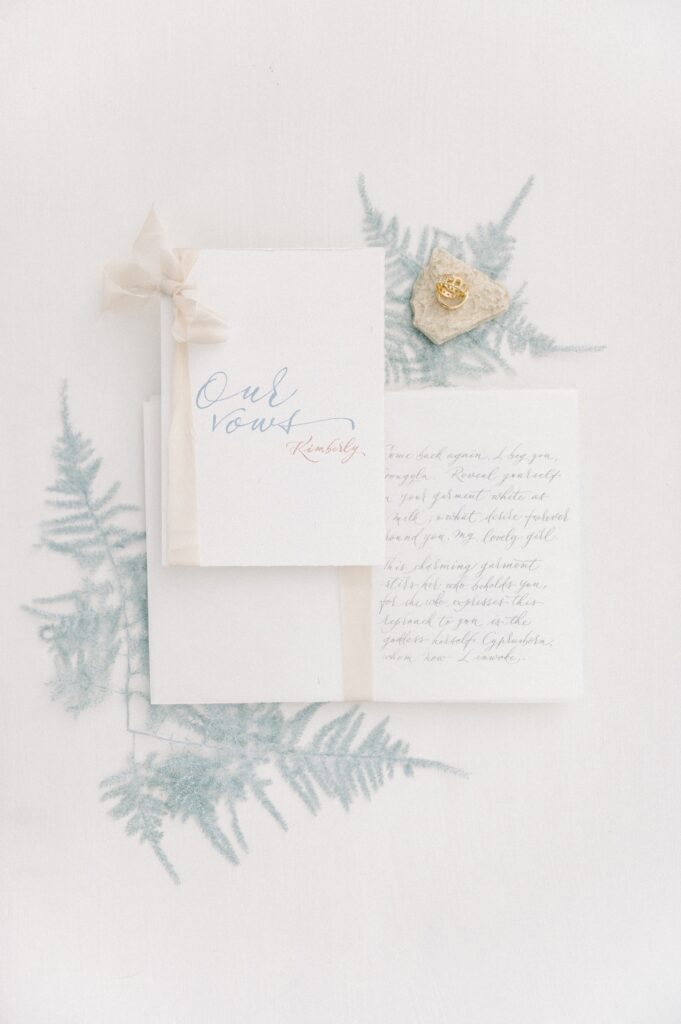 Our
vows
Kimberly.
Come back again, I beg you,
ongyla. Reveal yourself
n your garment white as
milk; o what desire forever
round you, my lovely girl.
This charming garment
stirs her who beholds you,
for she who expresses this
reproach to you is the
goddess herself Cyprusborn,
whom now I invoke.